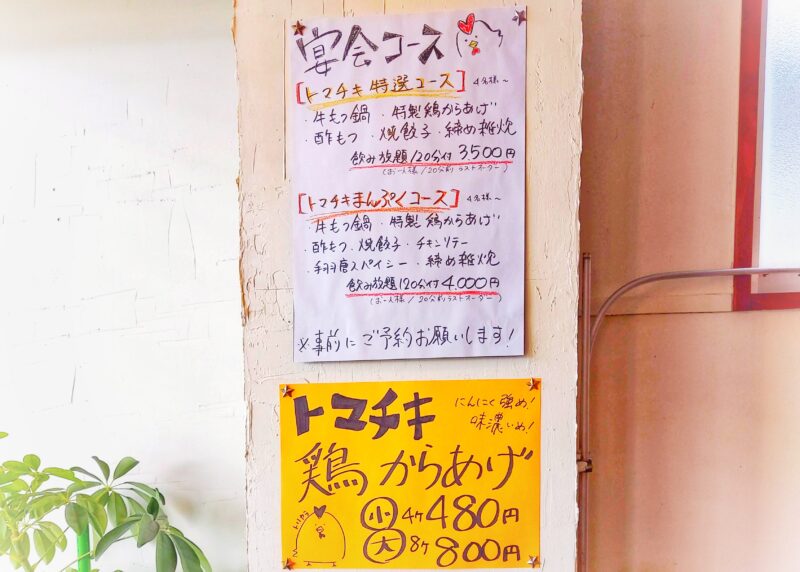 宴会コース
[トマチキ特選コース] 4名様～
・牛もつ鍋 ・特製鶏からあげ
・酢もつ ・焼餃子 ・締め雑炊
飲み放題120分付 3,500円
(お一人様/20分前ラストオーダー)
[トマチキまんぷくコース] 4名様～
・牛もつ鍋 ・特製鶏からあげ
・酢もつ ・焼餃子 ・チキンソテー
・手羽唐スパイシー ・締め雑炊
飲み放題120分付 4,000円
(お一人様/20分前ラストオーダー)
※事前にご予約お願いします!
トマチキ
にんにく強め!
味濃いめ!
鶏からあげ
小 4ケ 480円
大 8ケ 800円